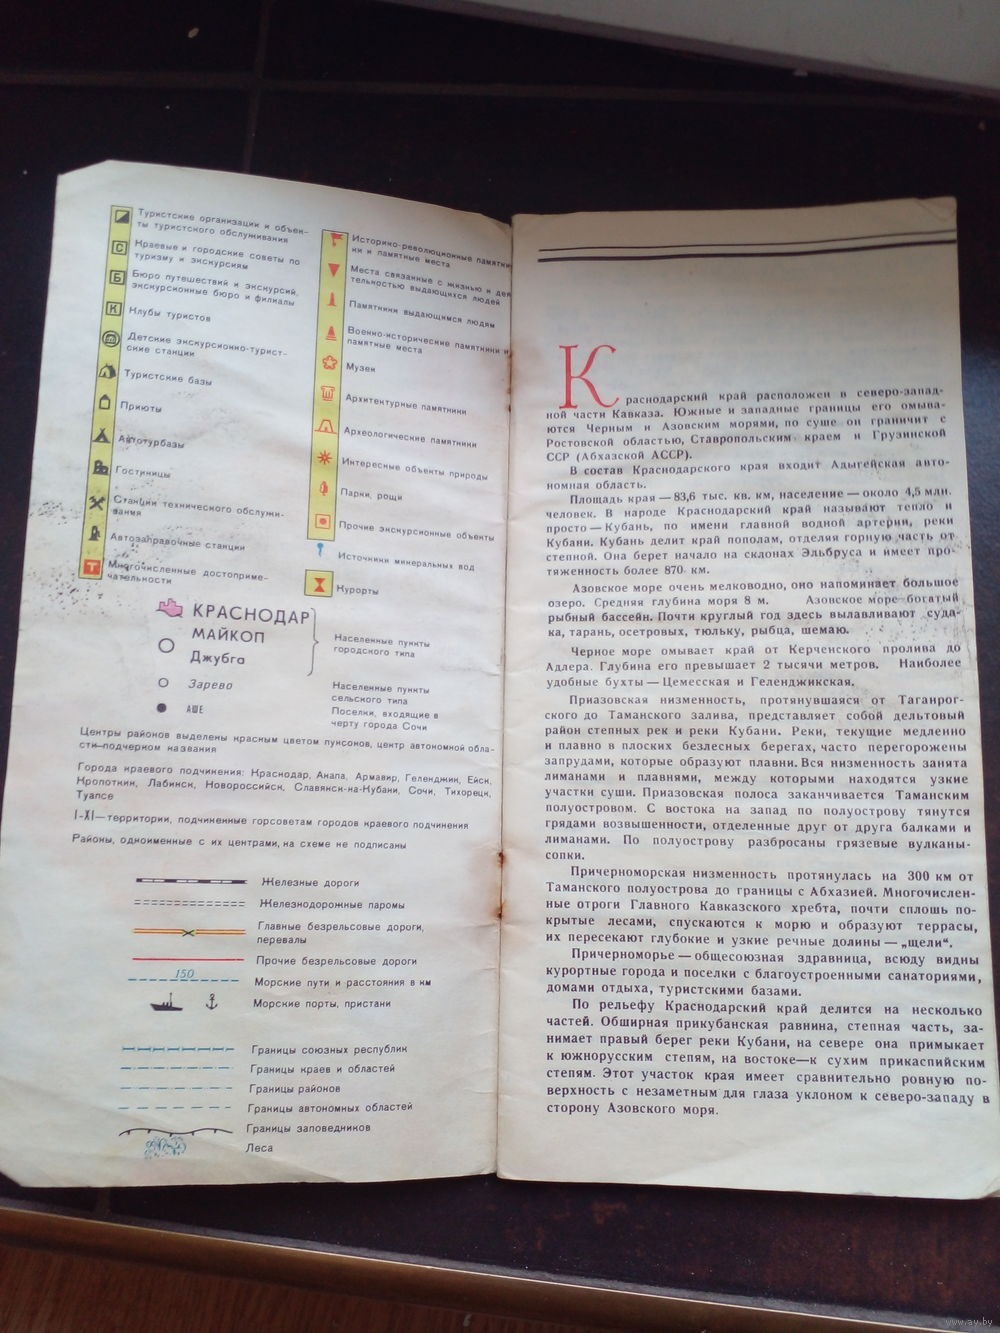 Туристские организации и объек-
ты туристского обслуживания
С
Краевые и городские советы по
туризму и экскурсиям
Б
Бюро путешествий и экскурсий,
экскурсионные бюро и филиалы
К
Клубы туристов
Детские экскурсионно-турист-
ские станции
Туристские базы
Приюты
Автотурбазы
Гостиницы
Станции технического обслужи-
вания
Автозаправочные станции
Т
Многочисленные достоприме-
чательности
Историко-революционные памятни-
ки и памятные места
Места связанные с жизнью и дея-
тельностью выдающихся людей
Памятники выдающимся людям
Военно-исторические памятники и
памятные места
Музеи
Архитектурные памятники
Археологические памятники
Интересные объекты природы
Парки, рощи
Прочие экскурсионные объекты
Источники минеральных вод
Курорты
КРАСНОДАР
МАЙКОП
Джубга
Населенные пункты
городского типа
Зарево
Населенные пункты
сельского типа
АШЕ
Поселки, входящие в
черту города Сочи
Центры районов выделены красным цветом пунсонов, центр автономной обла-
сти—подчерком названия
Города краевого подчинения: Краснодар, Анапа, Армавир, Геленджик, Ейск,
Кропоткин, Лабинск, Новороссийск, Славянск-на-Кубани, Сочи, Тихорецк,
Туапсе
I-XI—территории, подчиненные горсоветам городов краевого подчинения
Районы, одноименные с их центрами, на схеме не подписаны
Железные дороги
Железнодорожные паромы
Главные безрельсовые дороги,
перевалы
Прочие безрельсовые дороги
150
Морские пути и расстояния в км
Морские порты, пристани
Границы союзных республик
Границы краев и областей
Границы районов
Границы автономных областей
Границы заповедников
Леса
Краснодарский край расположен в северо-запад-
ной части Кавказа. Южные и западные границы его омыва-
ются Черным и Азовским морями, по суше он граничит с
Ростовской областью, Ставропольским краем и Грузинской
ССР (Абхазской АССР).
В состав Краснодарского края входит Адыгейская авто-
номная область.
Площадь края — 83,6 тыс. кв. км, население — около 4,5 млн.
человек. В народе Краснодарский край называют тепло и
просто — Кубань, по имени главной водной артерии, реки
Кубани. Кубань делит край пополам, отделяя горную часть от
степной. Она берет начало на склонах Эльбруса и имеет про-
тяженность более 870 км.
Азовское море очень мелководно, оно напоминает большое
озеро. Средняя глубина моря 8 м. Азовское море богатый
рыбный бассейн. Почти круглый год здесь вылавливают суда-
ка, тарань, осетровых, тюльку, рыбца, шемаю.
Черное море омывает край от Керченского пролива до
Адлера. Глубина его превышает 2 тысячи метров. Наиболее
удобные бухты — Цемесская и Геленджикская.
Приазовская низменность, протянувшаяся от Таганрог-
ского до Таманского залива, представляет собой дельтовый
район степных рек и реки Кубани. Реки, текущие медленно
и плавно в плоских безлесных берегах, часто перегорожены
запрудами, которые образуют плавни. Вся низменность занята
лиманами и плавнями, между которыми находятся узкие
участки суши. Приазовская полоса заканчивается Таманским
полуостровом. С востока на запад по полуострову тянутся
грядами возвышенности, отделенные друг от друга балками и
лиманами. По полуострову разбросаны грязевые вулканы-
сопки.
Причерноморская низменность протянулась на 300 км от
Таманского полуострова до границы с Абхазией. Многочислен-
ные отроги Главного Кавказского хребта, почти сплошь по-
крытые лесами, спускаются к морю и образуют террасы,
их пересекают глубокие и узкие речные долины — „щели“.
Причерноморье — общесоюзная здравница, всюду видны
курортные города и поселки с благоустроенными санаториями,
домами отдыха, туристскими базами.
По рельефу Краснодарский край делится на несколько
частей. Обширная прикубанская равнина, степная часть, за-
нимает правый берег реки Кубани, на севере она примыкает
к южнорусским степям, на востоке—к сухим прикаспийским
степям. Этот участок края имеет сравнительно ровную по-
верхность с незаметным для глаза уклоном к северо-западу в
сторону Азовского моря.
www.ay.by